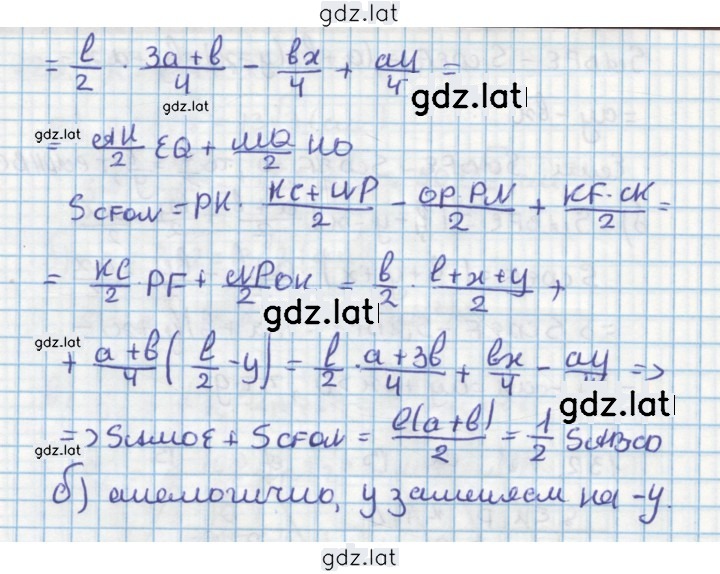 gdz.lat
= l/2 · 3a+b/4 − bx/4 + ay/4 =
gdz.lat
gdz.lat
gdz.lat
= AK/2 EQ + MQ/2 KO
S CFON = PK · KC+NP/2 − OP·PN/2 + KF·CK/2 =
= KC/2 · PF + NP/2 OK = b/2 · l+x+y/2 +
gdz.lat
gdz.lat
+ a+b/4 ( l/2 −y) = l/2 · a+3b/4 + bx/4 − ay/4 =>
gdz.lat
gdz.lat
=> S AMOE + S CFON = l(a+b)/2 = 1/2 S ABCD
б) аналогично, y заменяем на -y.
gdz.lat